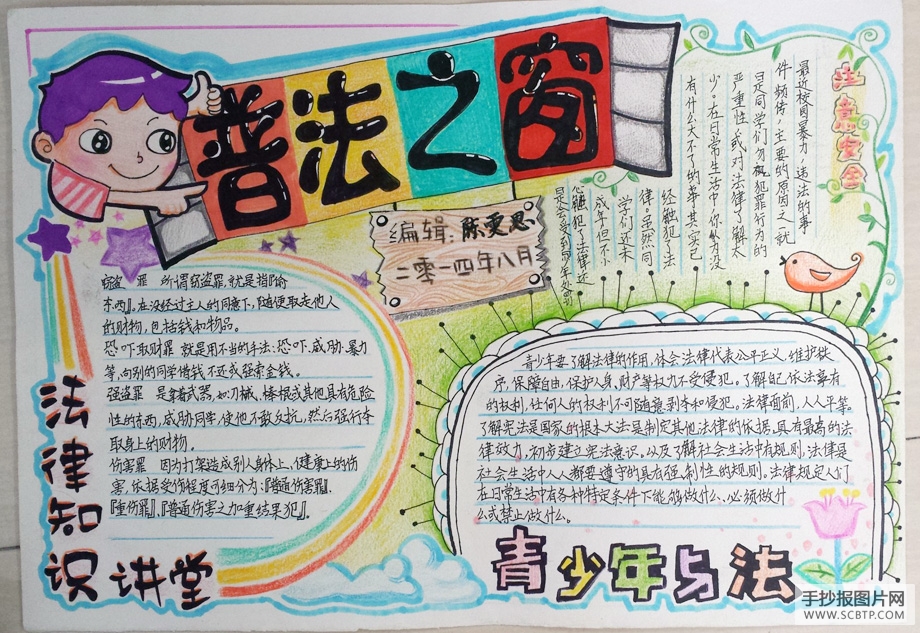 普法之窗
编辑:陈雯思
二零一四年八月
注意安全
最近校园暴力,违法的事
件频传,主要的原因之一就
是同学们忽视犯罪行为的
严重性,或对法律了解太
少。在日常生活中,你认为没
有什么大不了的事,其实已
经触犯了法
律,虽然同
学们还未
成年,但不小
心触犯了法律,还
法律知识讲堂
窃盗罪 所谓窃盗罪,就是指『偷
东西』。在没经过主人的同意下,随便取走他人
的财物,包括钱和物品。
恐吓取财罪 就是用不当的手法:恐吓、威胁、暴力
等,向别的同学借钱不还或强索金钱。
强盗罪 是拿着武器,如刀械、棒棍或其他具有危险
性的东西,威胁同学,使他不敢反抗,然后强行拿
取身上的财物。
伤害罪 因为打架造成别人身体上、健康上的伤
害,依据受伤程度可细分为:『普通伤害罪』、
『重伤罪』、『普通伤害之加重结果犯』。
青少年要了解法律的作用,体会法律代表公平正义,维护秩
序,保障自由,保护人身、财产等权力不受侵犯。了解自己依法享有
的权利,任何人的权利不可随意剥夺和侵犯。法律面前,人人平等。
了解宪法是国家的根本大法,是制定其他法律的依据,具有最高的法
律效力,初步建立宪法意识,以及了解社会生活中有规则,法律是
社会生活中人人都要遵守的具有强制性的规则。法律规定人们
在日常生活中有各种特定条件下能够做什么、必须做什
么或禁止做什么。
青少年与法
手抄报图片网
WWW.SCBTP.COM